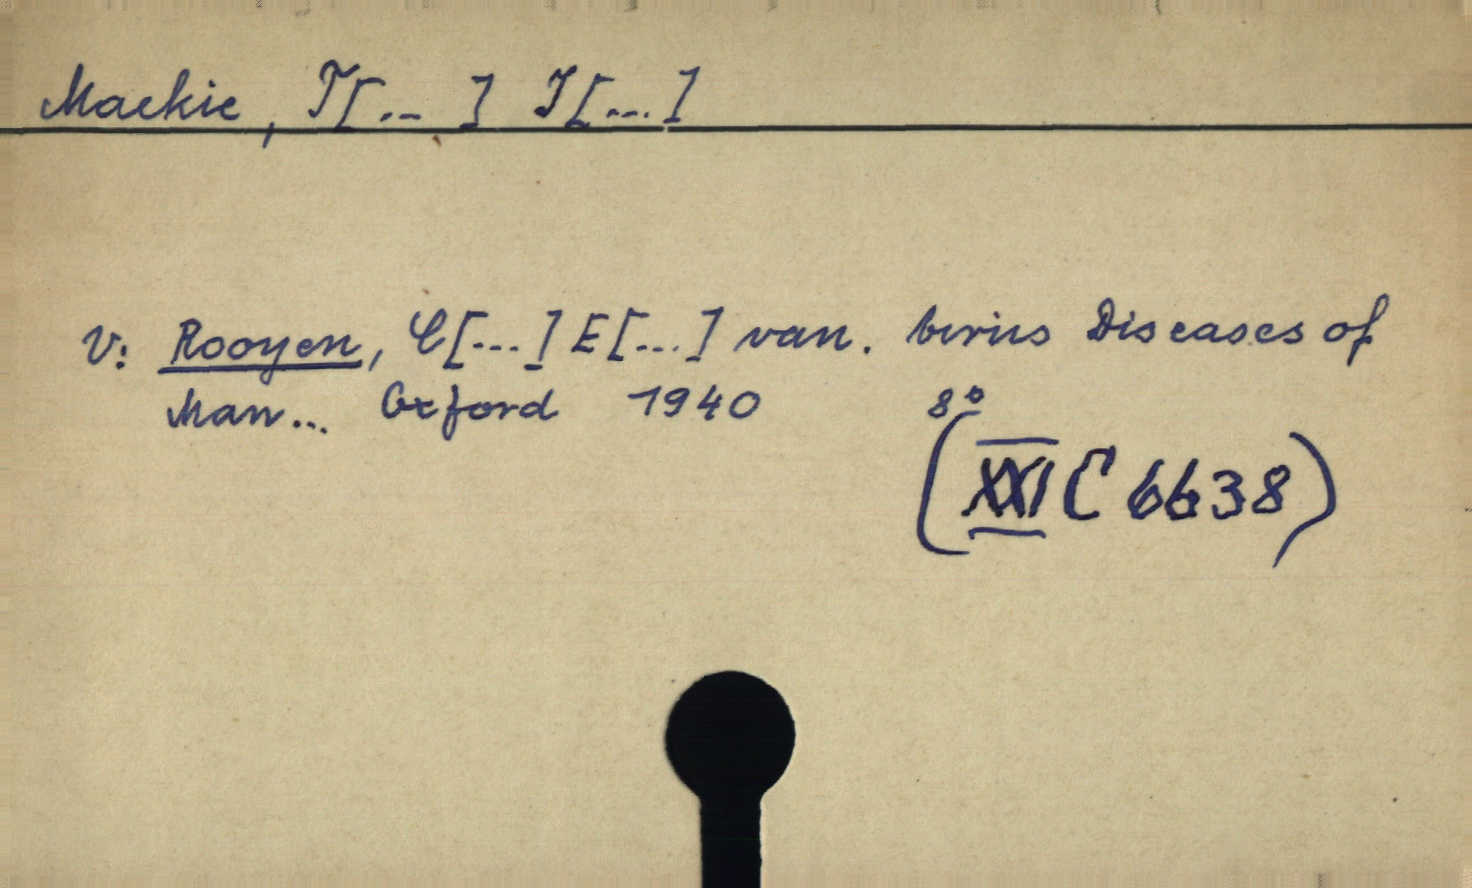 Mackie, T[...] J[...]
V: Rooyen, C[...] E[...] van. Virus Diseases of
Man... Oxford 1940 8°
(XXI C 6638)